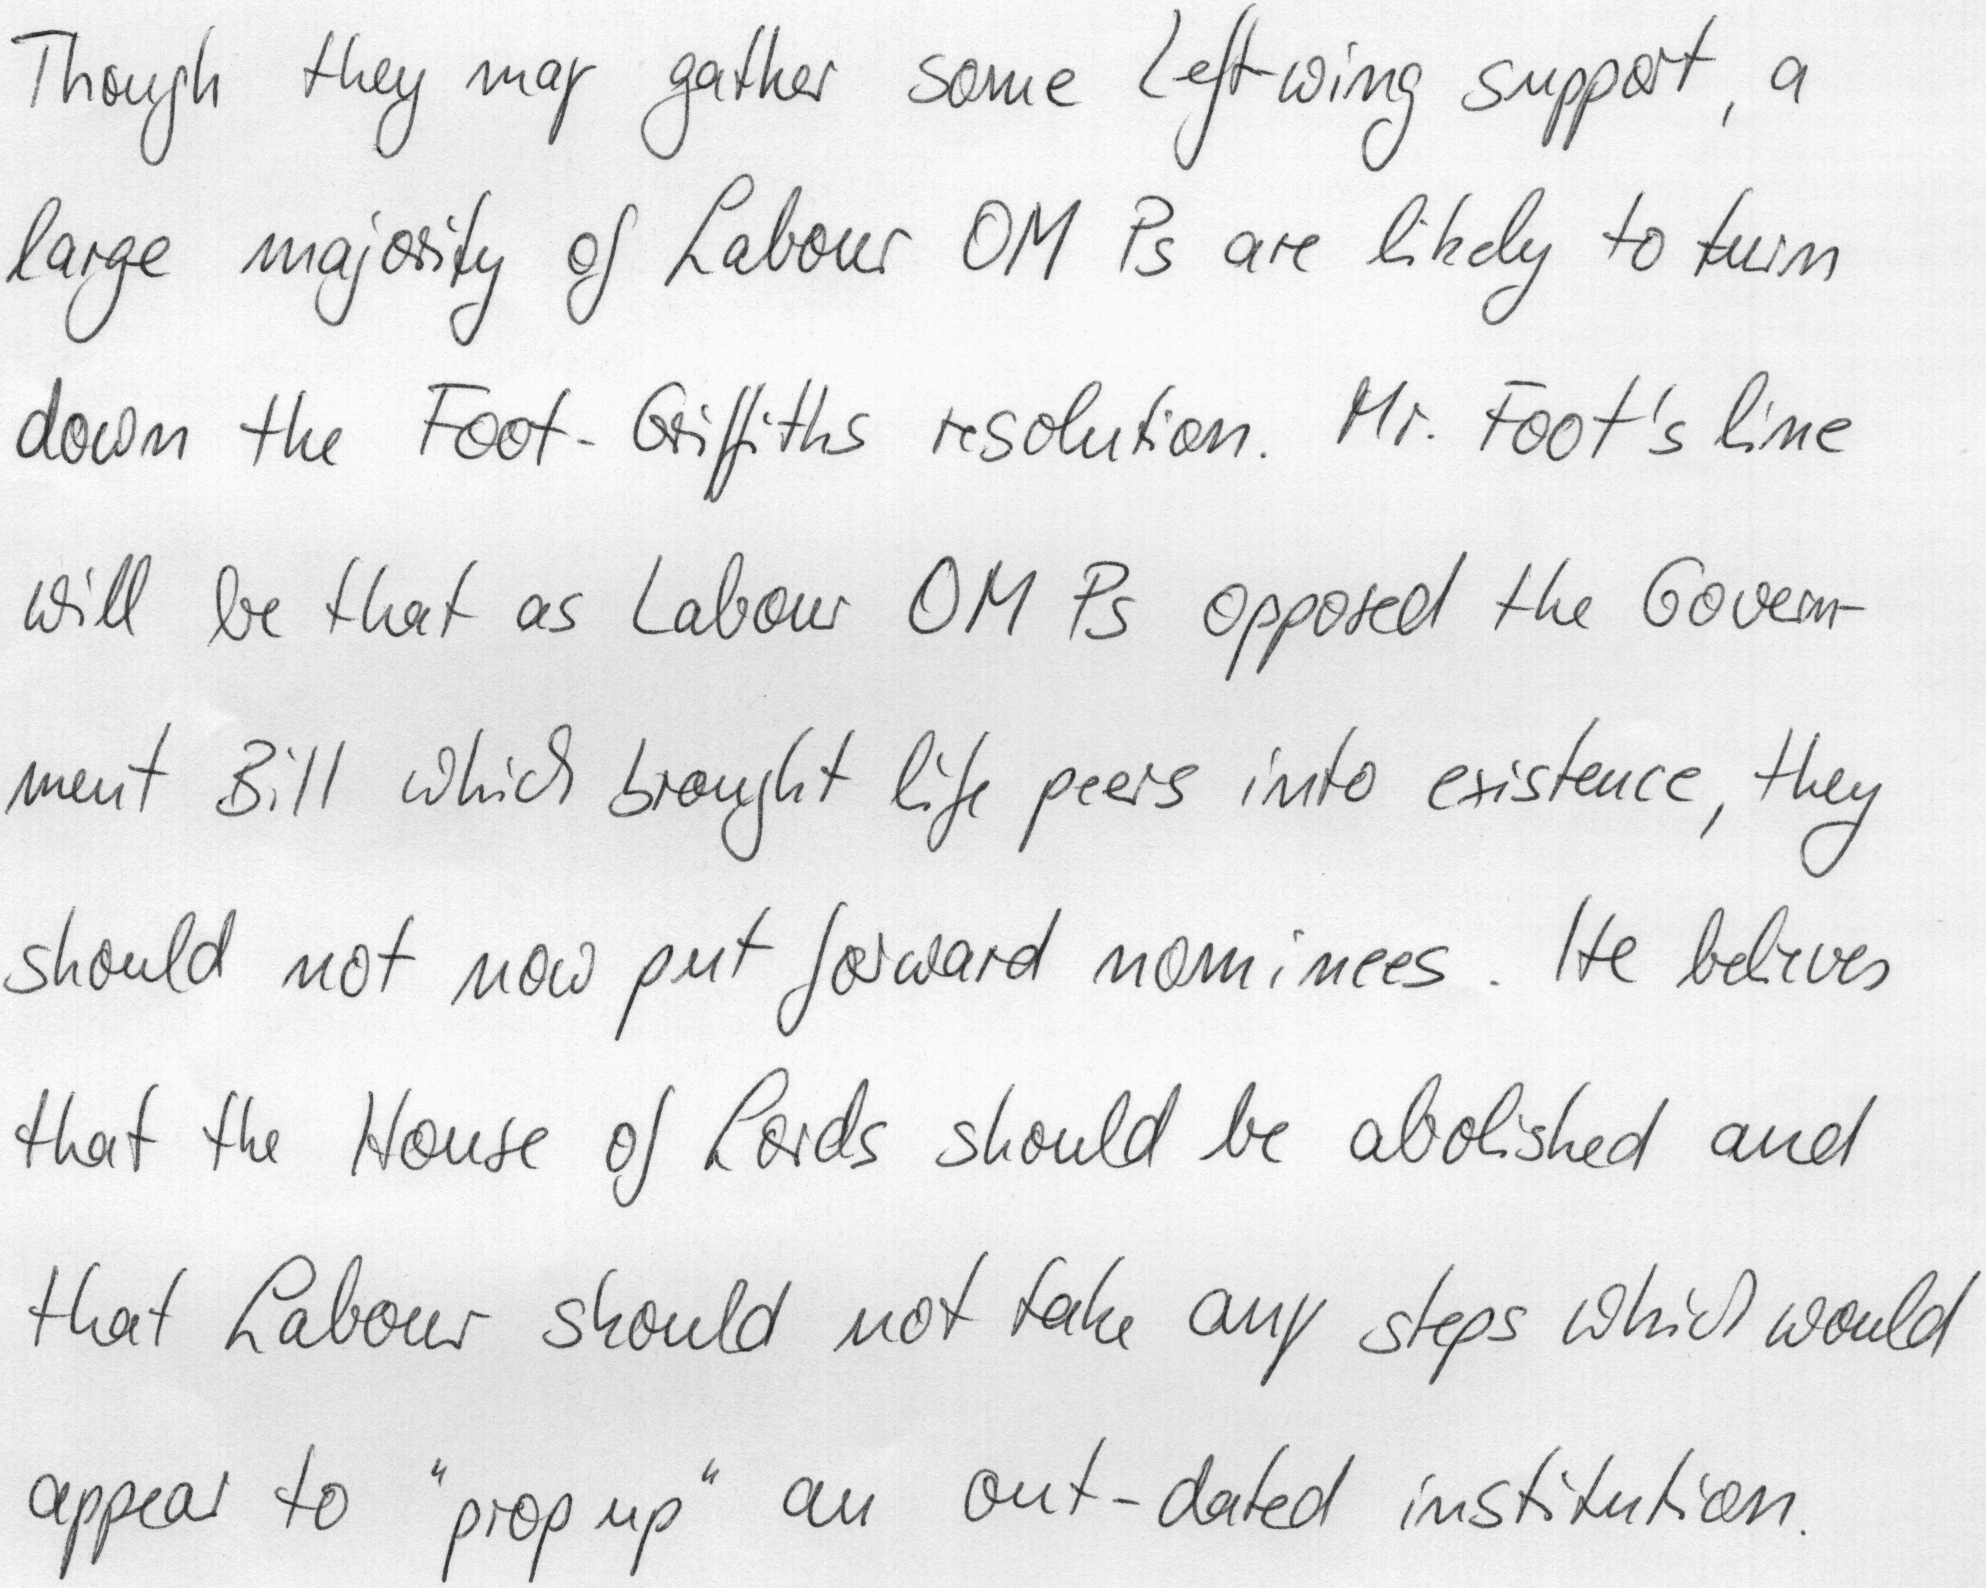 Though they may gather some Left-wing support, a
large majority of Labour OM Ps are likely to turn
down the Foot-Griffiths resolution. Mr. Foot's line
will be that as Labour OM Ps opposed the Govern-
ment Bill which brought life peers into existence, they
should not now put forward nominees. He believes
that the House of Lords should be abolished and
that Labour should not take any steps which would
appear to "prop up" an out-dated institution.